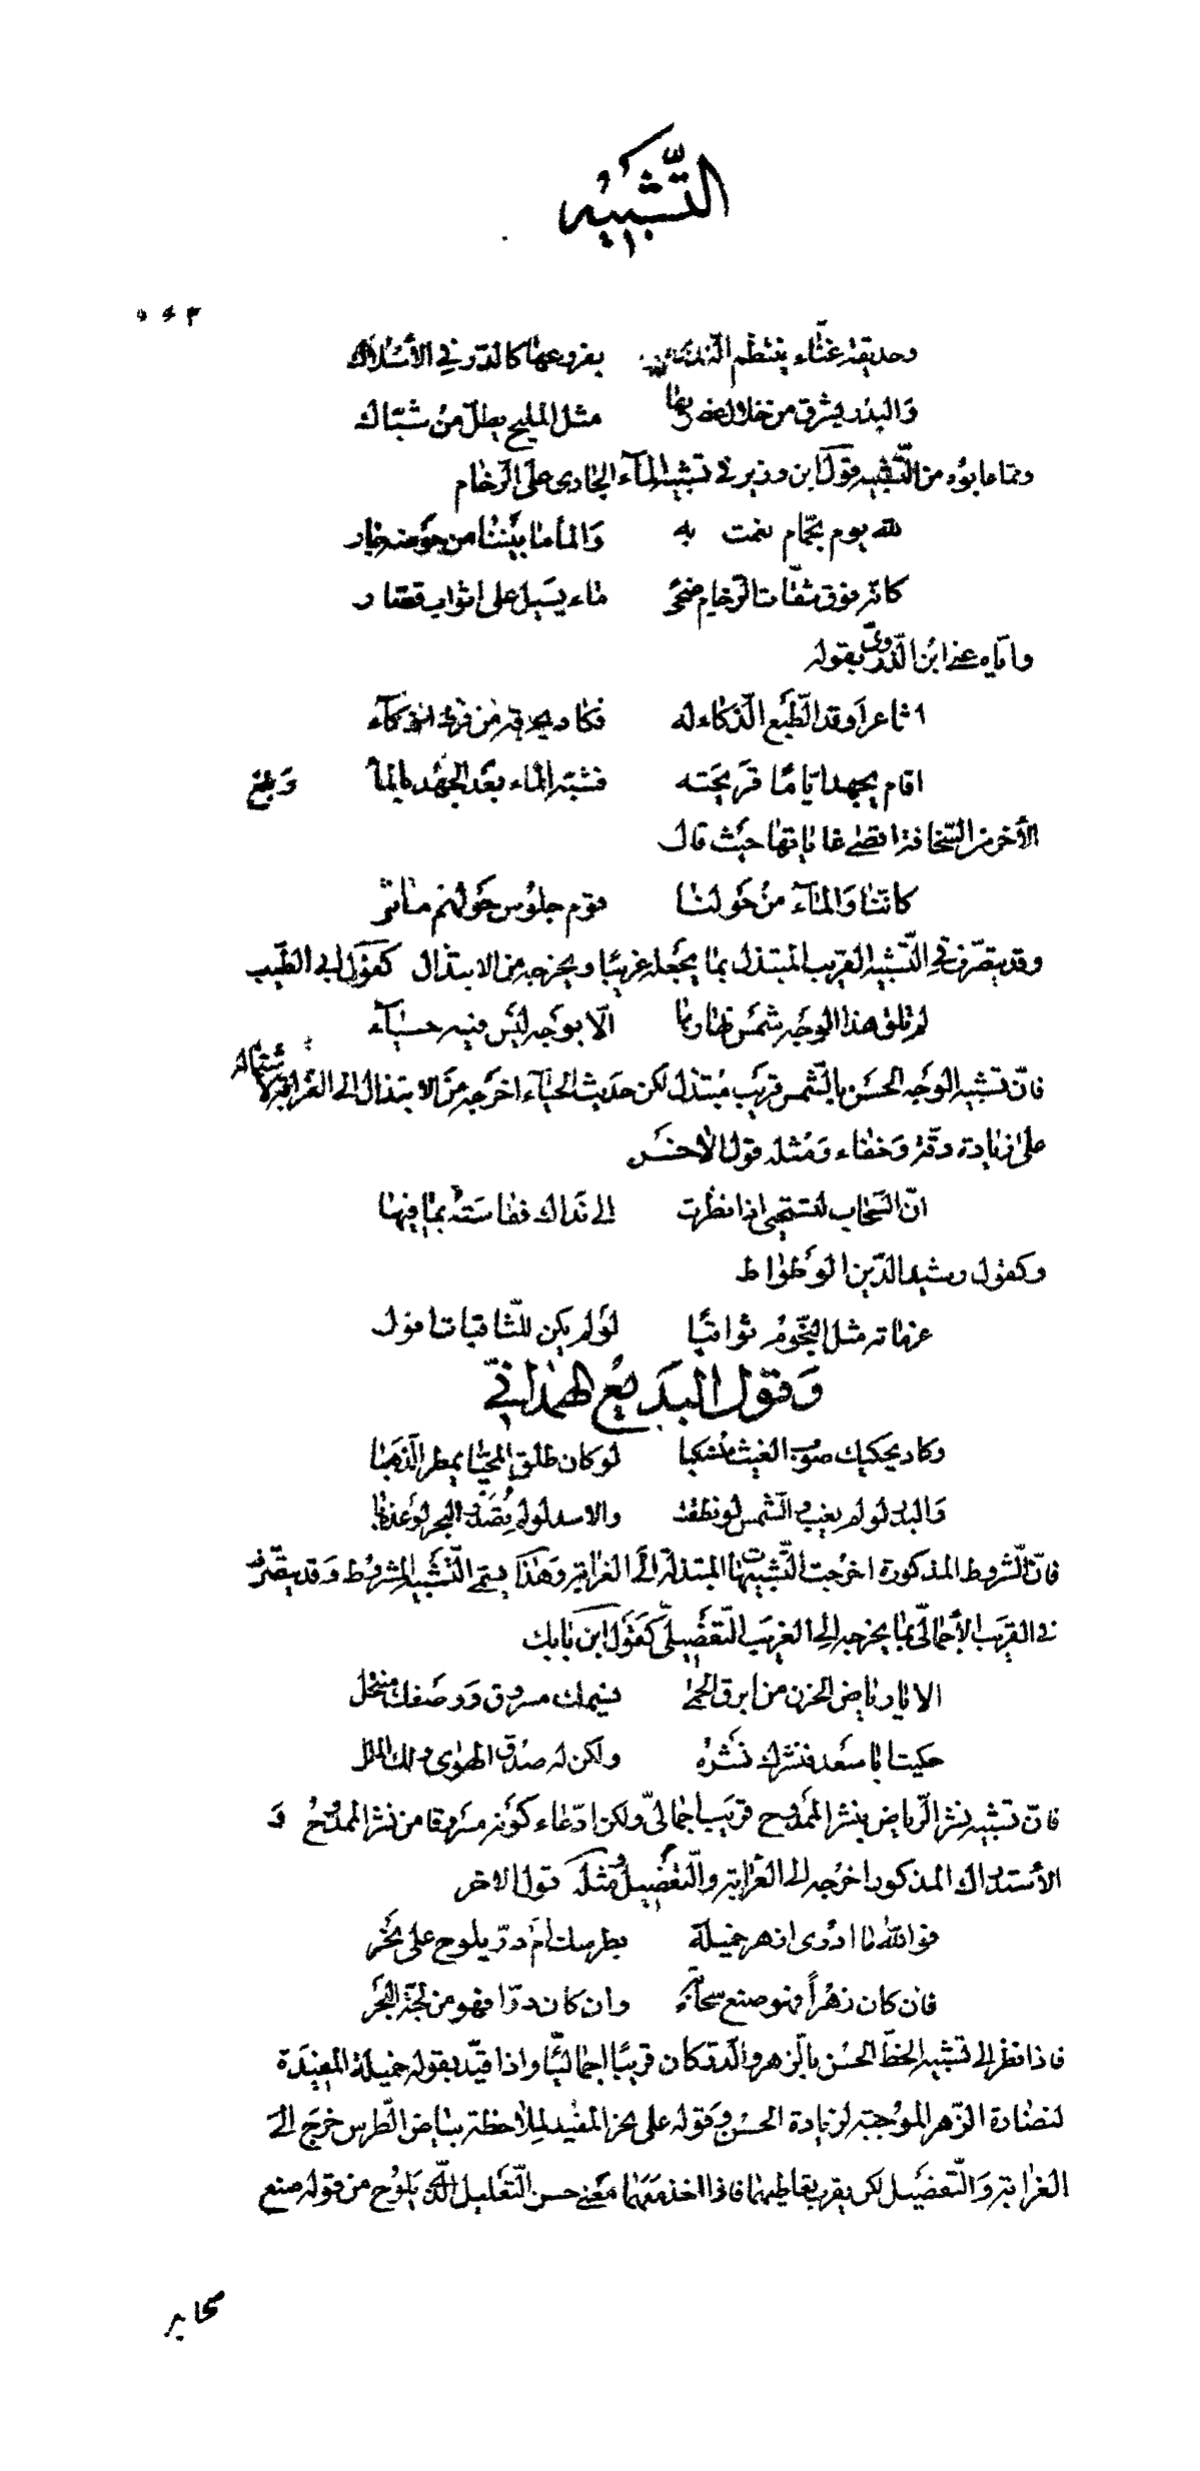 التّشبيه
٥٤٣
وحديقة غنّاء ينتظم الندى بفروعها كالدّر في الأسلاك
والبدر يشرق من خلال غصونها مثل المليح يطلّ من شبّاك
وممّا عابوه من التّشبيه قول ابن وزير في تشبيه المآء الجاري على الرّخام
لله يوم بحمّام نعمت به والمأ ما بيننا من حوضه جار
كانّه فوق شقّات الرّخام ضحى مٰاء يسيل على اثواب قصّار
وايّاه عنى ابن الذّروىّ بقوله
شاعر اوقد الطّبع الذّكاء له فكاد يحرقه من فرط اذكآء
اقام يجهد ايّامًا قريحته فشبّه المٰاء بعد الجهد بالمأ وبلغ
الأخر من السّخافة اقصى غاياتها حيث قال
كاننّا والمٰآء من حولنا قوم جلوس حولهم مٰاء
وقد يتصرّف في التّشبيه القريب المبتذل بما يجعله غريبًا ويخرجه من الابتذال كقول ابى الطّيب
لم تلق هذا الوجه شمس نهارنا الّا بوجه ليس فيه حيآء
فانّ تشبيه الوجه الحسن بالشّمس قريب مبتذل لكن حديث الحيآء اخرجه من الابتذال الى الغرابة لاشتماله
على زيادة دقّة وخفاء ومثله قول الاخر
انّ السّحاب لتستحيى اذا نظرت الى نداك فقاسته بما فيها
وكقول رشيد الدّين الوطواط
عزماته مثل النّجوم ثواقبًا لو لم يكن للثّاقبات افول
وقول البديع الهمذاني
وكاد يحكيك صوب الغيث منسكبا لو كان طلق المحيّا يمطر الذّهبا
والبدر لو لم يغب والشّمس لو نطقت والاسد لو لم تُصَد والبحر لو عذبا
فانّ الشّروط المذكورة اخرجت التّشبيهات المبتذلة الى الغرابة وهذا يسمّى التّشبيه المشروط وقد يتصّرف
في القريب الأجمالّى بما يخرجه الى الغريب التّفصيلىّ كقول ابن بابك
الا يا رياض الحزن من ابرق الحمى نسيمك مسروق ووصفك منتحل
حكيت ابا سعد فنشرك نشره ولكن له صدق الهوى ولك الملل
فانّ تشبيه نشر الرّياض بنشر الممدوح قريب اجمالىّ ولكن ادّعاء كونه مسروقا من نشر الممدوح و
الأستدراك المذكور اخرجه الى الغرابة والتّفصيل ومثله قول الاخر
فوالله ما ادرى ازهر خميلة بطرسك ام درّ يلوح على نحر
فان كان زهراً فهو صنع سحابة وان كان درّا فهو من لجّة البحر
فاذا نظر الى تشبيه الخطّ الحسن بالزّهر والدّر كان قريبًا اجماليًّا واذا قيّد بقوله خميلة المفيدة
لنضارة الزّهر الموجبة لزيادة الحسن وقوله على نحر المفيد لملاحظة بياض الطّرس خرج الى
الغرابة والتّفضيل لكن يقرب تعاطيهما فاذا اخذ معهما معنى حسن التّعليل الّذى يلوح من قوله صنع
سحابة